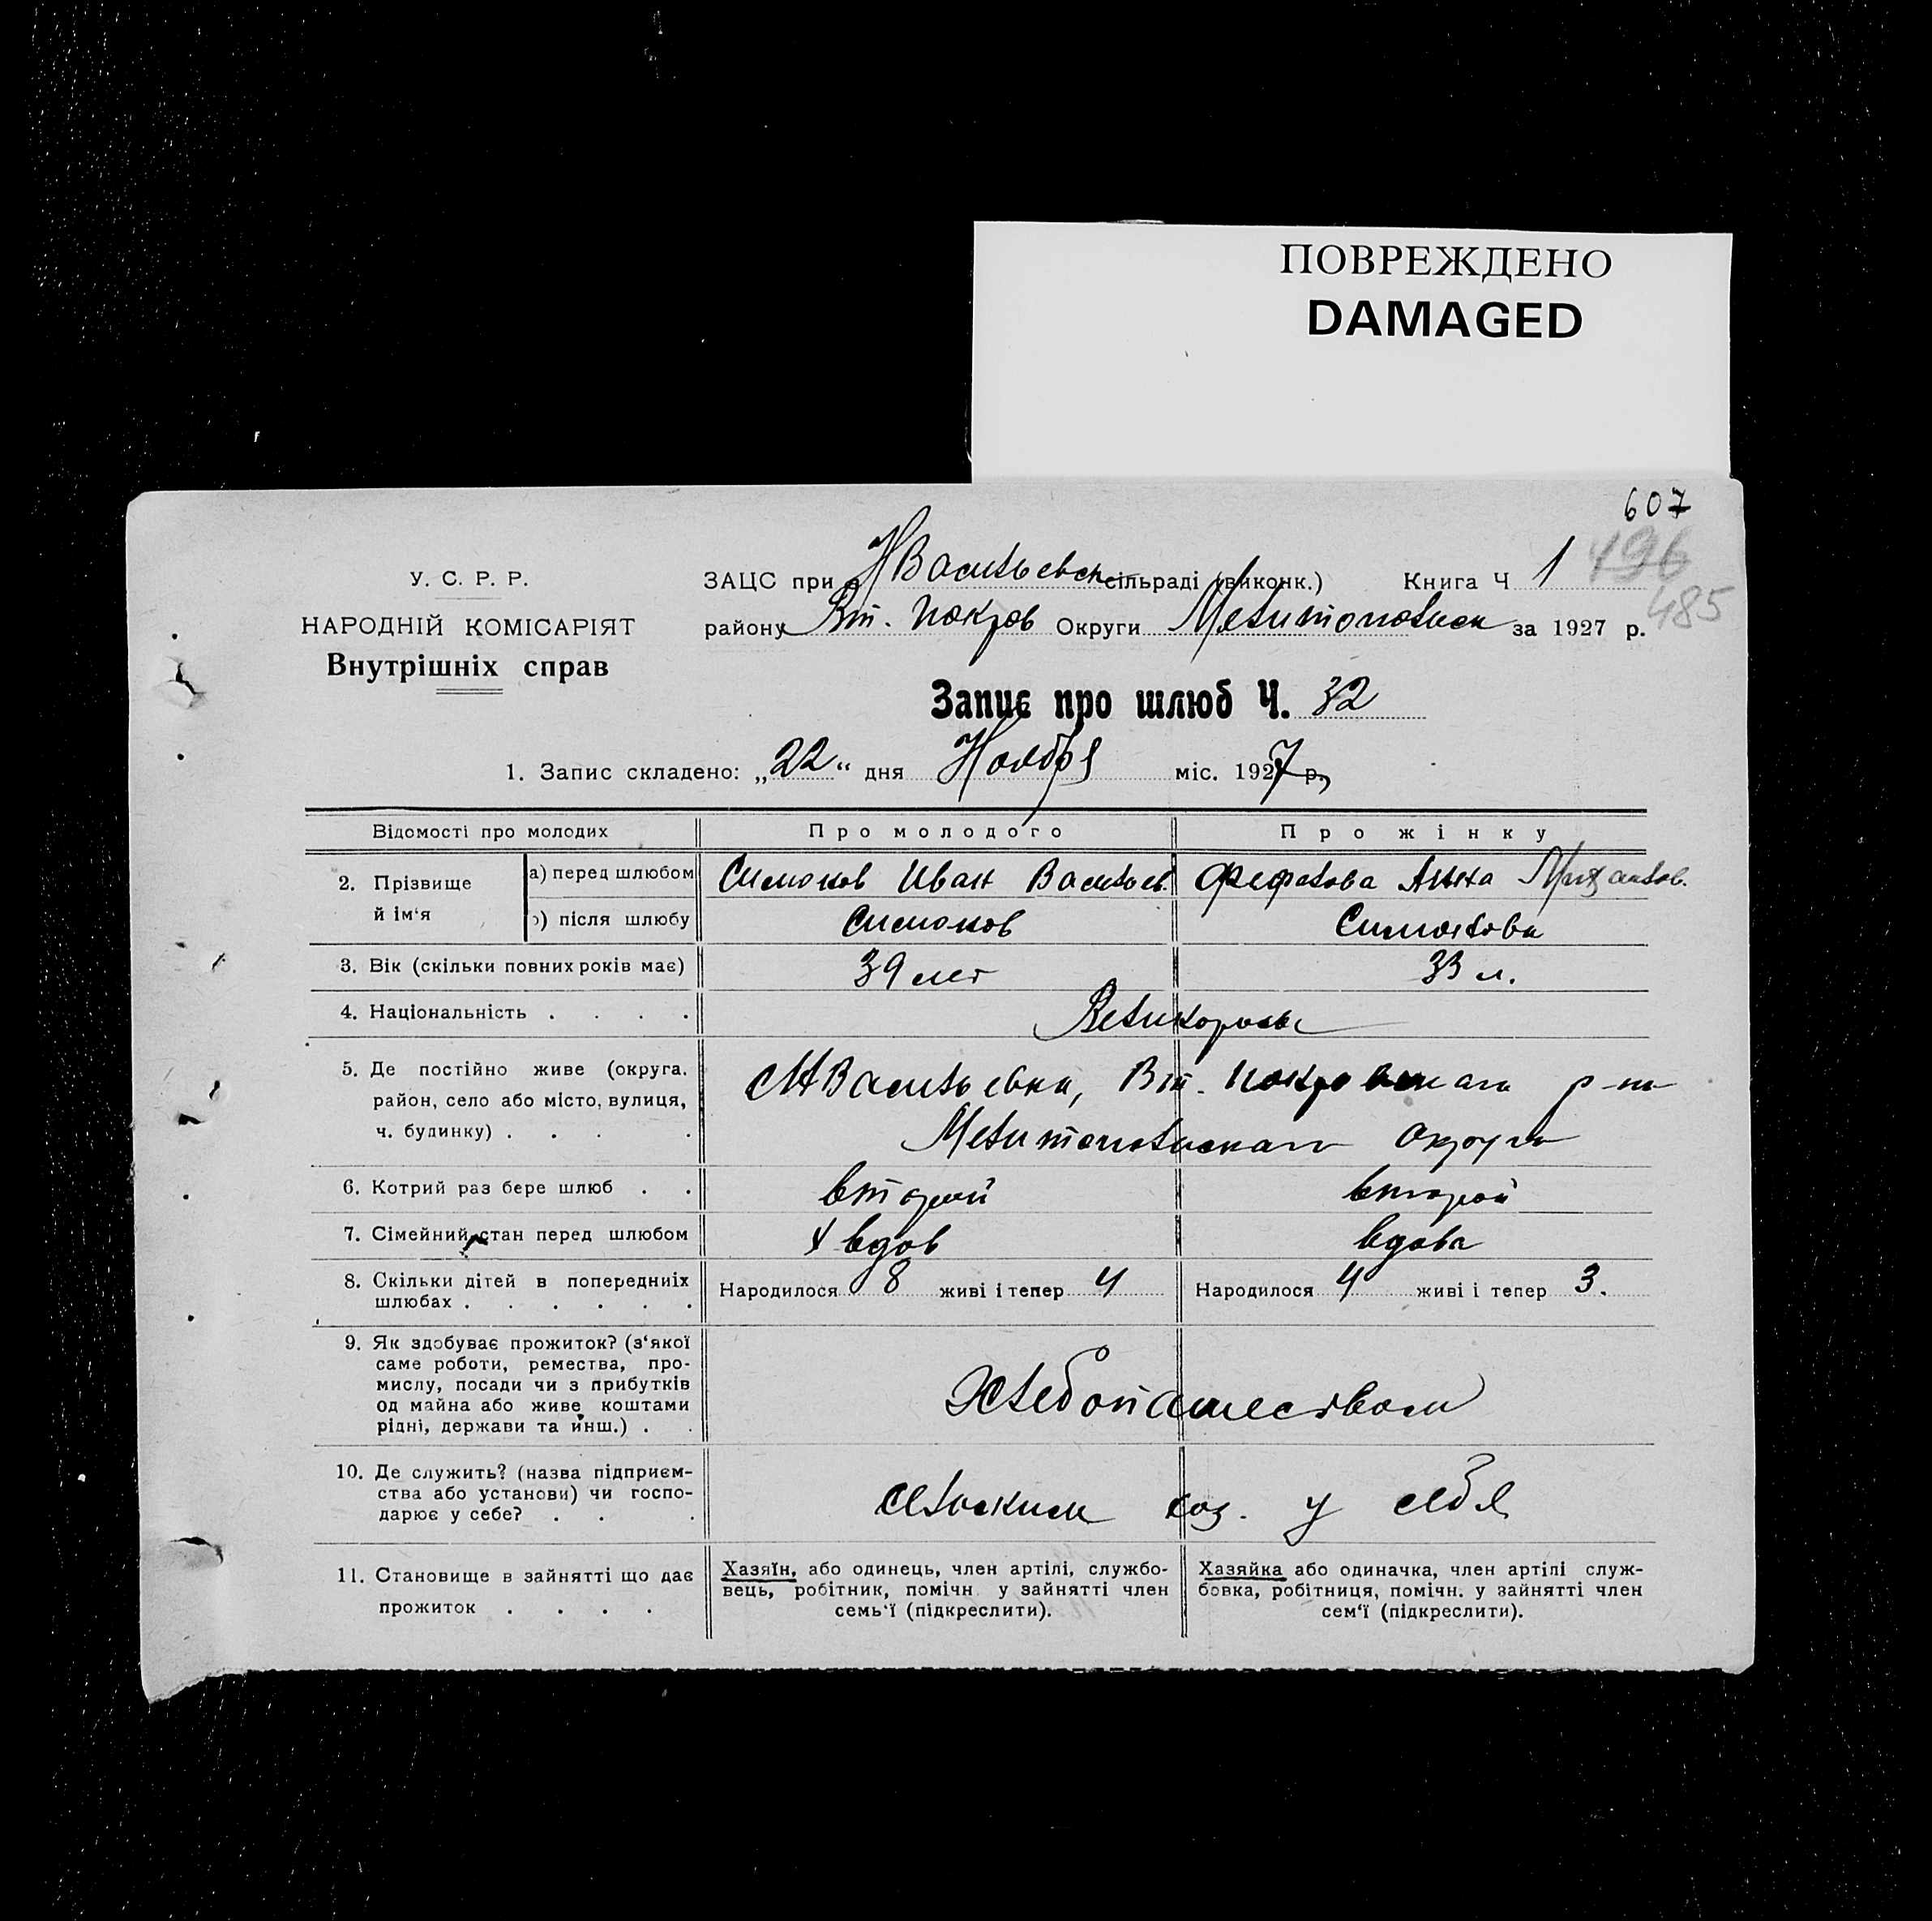 ПОВРЕЖДЕНО
DAMAGED
607
496
485
У. С. Р. Р.
НАРОДНІЙ КОМІСАРІЯТ
Внутрішніх справ
ЗАЦС при НВасильевск сільраді (виконк.) Книга Ч 1
району Вт. Покров Округи Мелитопольск за 1927 р.
Запис про шлюб Ч. 32
1. Запис складено: „22“ дня Ноября міс. 1927 р.
Відомості про молодих Про молодого Про жінку
2. Прізвище й ім‘я
а) перед шлюбом Симонов Иван Васильев. Анна
б) після шлюбу Симонов Симонова
3. Вік (скільки повних років має) 39 лет 33 л.
4. Національність . . . . Великороссы
5. Де постійно живе (округа. район, село або місто, вулиця, ч. будинку) . . . .
НВасильевка, Вт. Покровскаго р-на
Мелитопольскаго Округа
6. Котрий раз бере шлюб . . второй второй
7. Сімейний стан перед шлюбом вдов вдова
8. Скільки дітей в попередниіх шлюбах . . . . . . Народилося 8 живі і тепер 4 Народилося 4 живі і тепер 3.
9. Як здобуває прожиток? (з‘якої
саме роботи, ремества, про-
мислу, посади чи з прибутків
од майна або живе коштами
рідні, держави та инш.) . .
Хлебопашеством
10. Де служить? (назва підприєм-
ства або установи) чи госпо-
дарює у себе? . . .
сельским хоз. у себя
11. Становище в зайнятті що дає
прожиток . . . .
Хазяїн, або одинець, член артілі, службо-
вець, робітник, помічн. у зайнятті член
семь‘ї (підкреслити).
Хазяйка або одиначка, член артілі служ-
бовка, робітниця, помічн. у зайнятті член
сем‘ї (підкреслити).